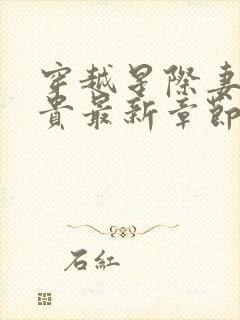 穿越星際妻
貴最新章節
石紅